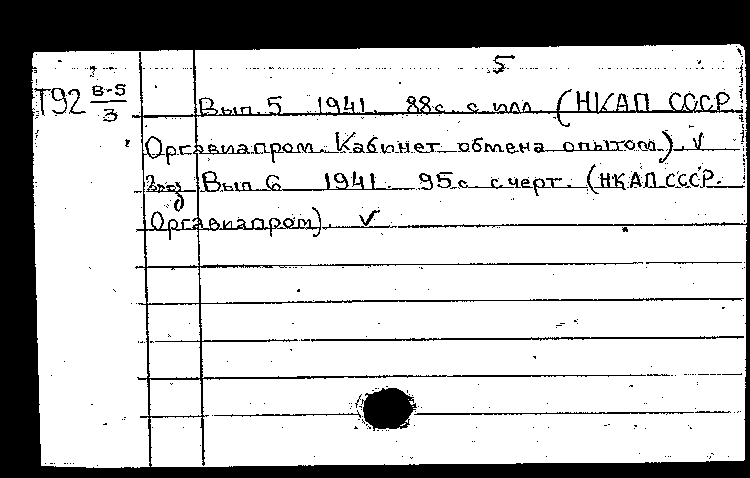 5
Т92 В-5/3 Вып. 5 1941. 88с. с илл. (НКАП СССР.
Оргавиапром. Кабинет обмена опытом). √
2экз Вып 6 1941. 95с. с черт. (НКАП СССР.
Оргавиапром). √